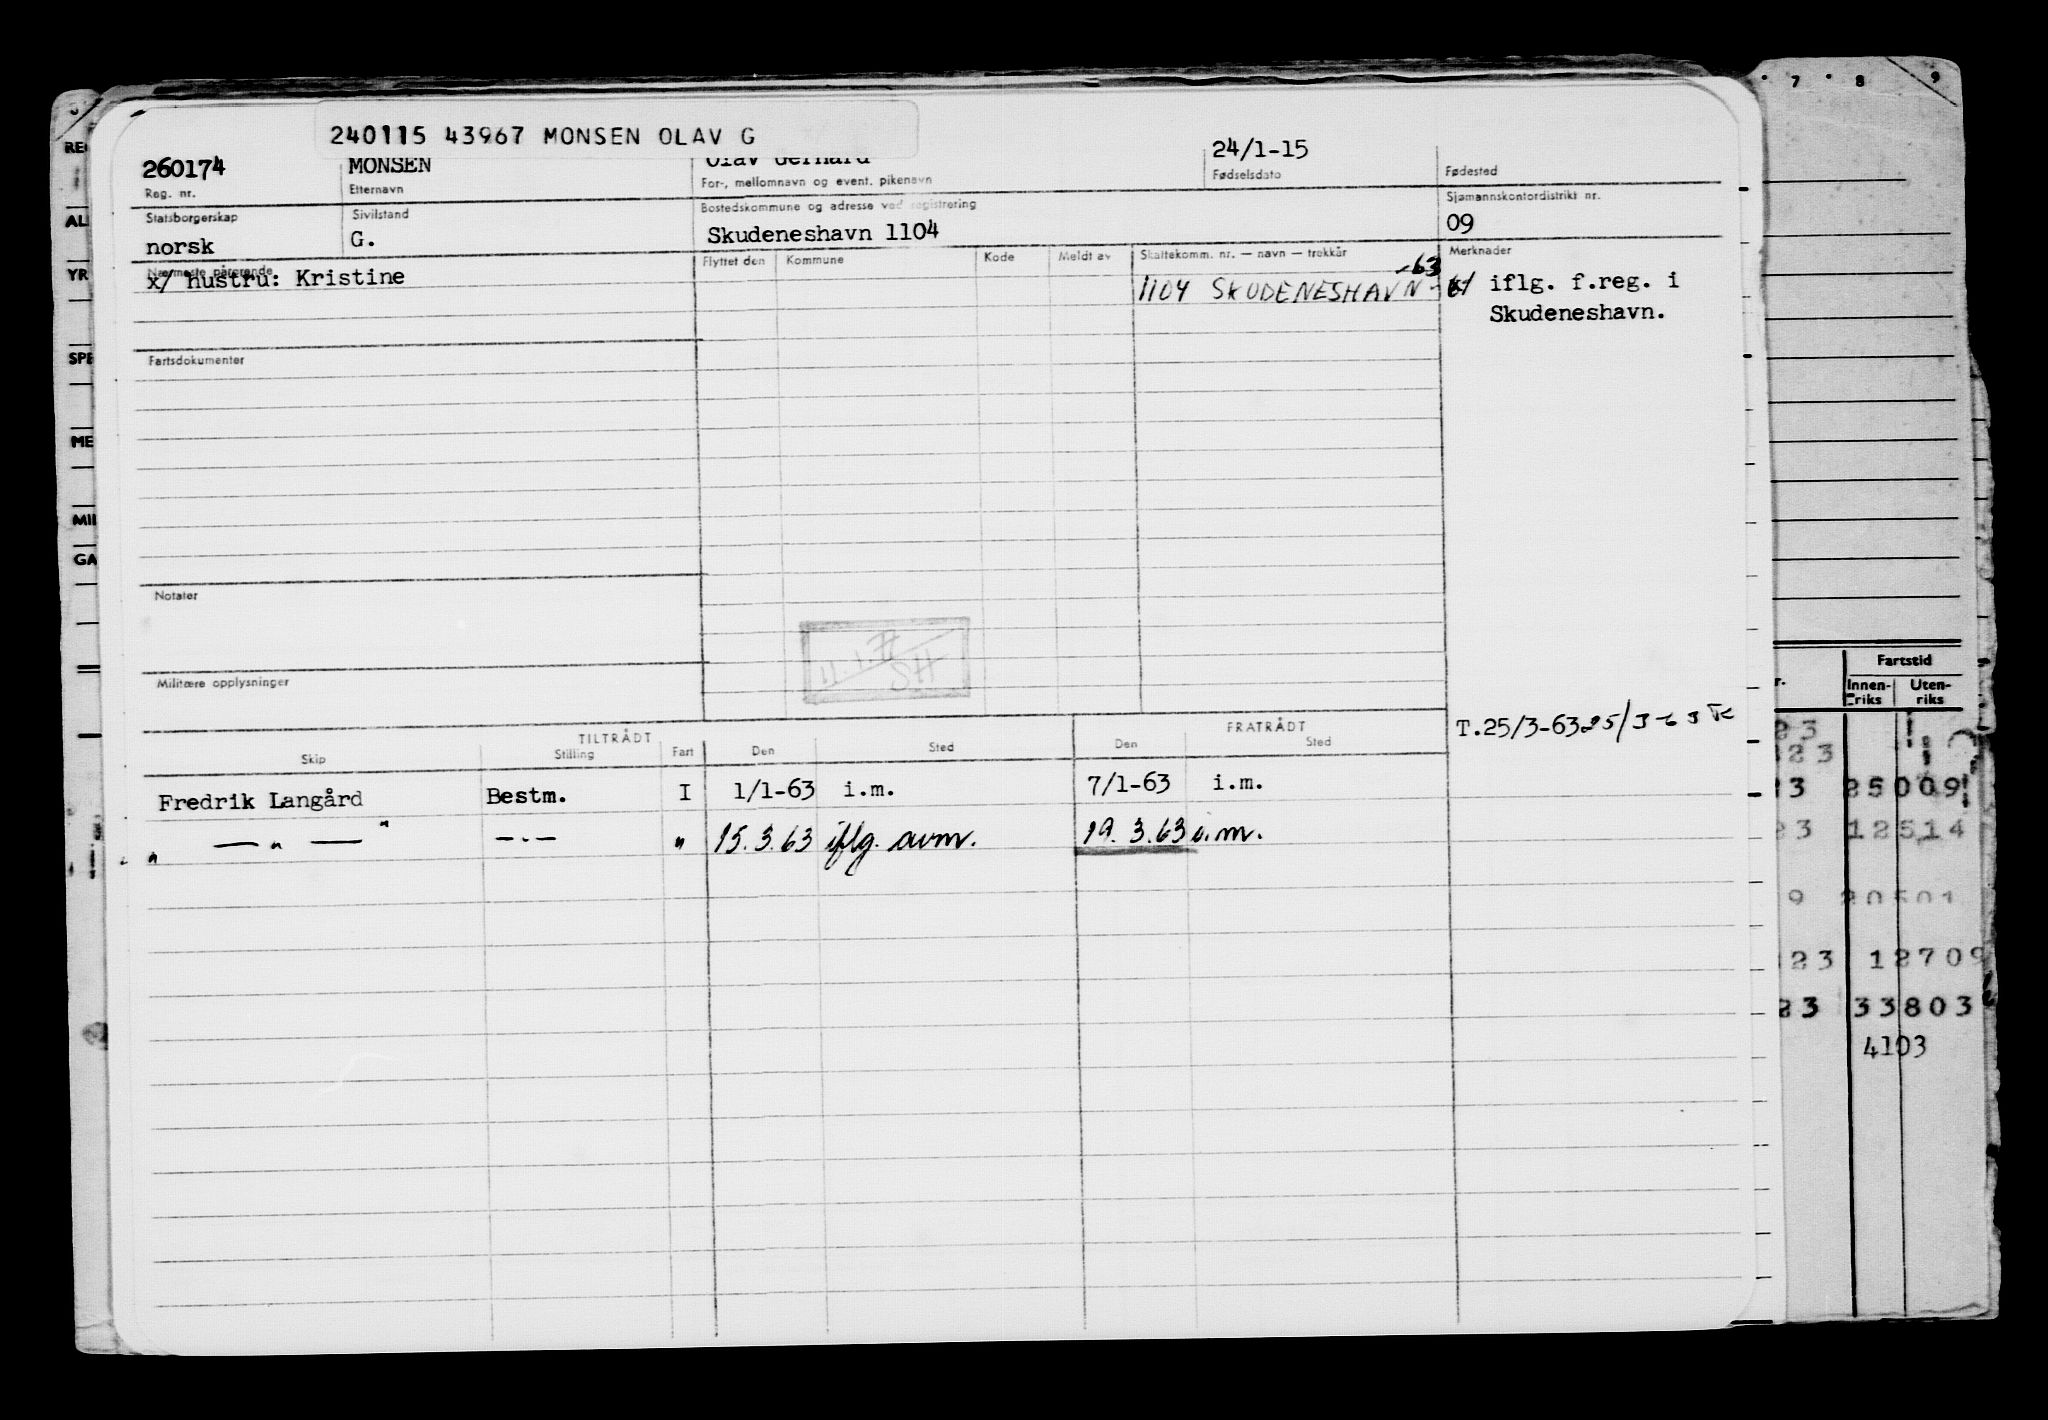 7 8 9
240115 43967 MONSEN OLAV G
260174 MONSEN Olav Gerhard 24/1-15
Reg. nr. Etternavn For-, mellomnavn og event. pikenavn Fødselsdato Fødested
Statsborgerskap Sivilstand Bostedskommune og adresse ved registrering Sjømannskontordistrikt nr.
norsk G. Skudeneshavn 1104 09
Nærmeste pårørende Flyttet den Kommune Kode Meldt av Skattekomm. nr. — navn — trekkår Merknader
x/ hustru: Kristine 1104 SKUDENESHAVN -63 x/ iflg. f.reg. i
Skudeneshavn.
Fartsdokumenter
Notater
Militære opplysninger
T.25/3-63
TILTRÅDT FRATRÅDT
Skip Stilling Fart Den Sted Den Sted
Fredrik Langård Bestm. I 1/1-63 i.m. 7/1-63 i.m.
" — " — " —.— " 15.3.63 iflg. avm. 19.3.63 i.m.
REG
ALI
YR
SPE
ME
MIL
GA
Fartstid
r. Innen-riks Uten-riks
23
323
23 25009
23 12514
9 20501
123 12709
23 33803
4103